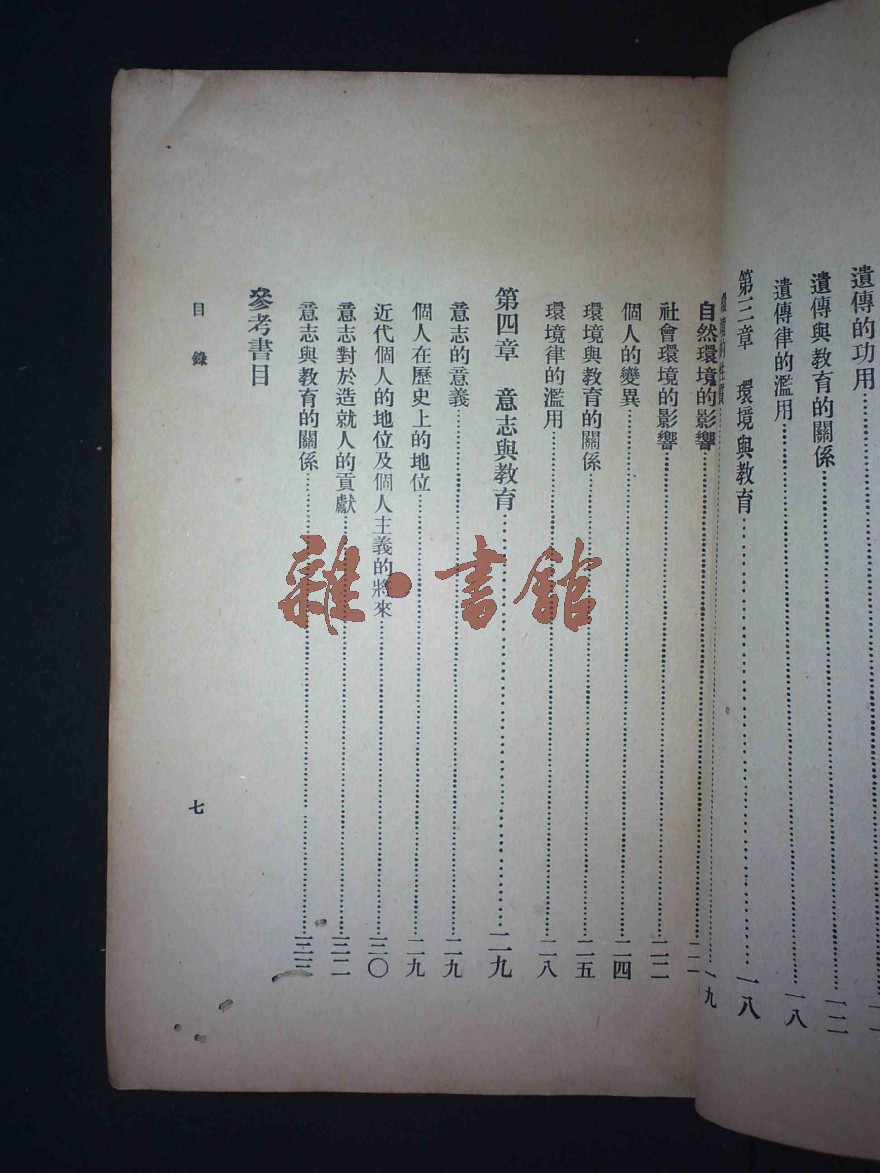 遺傳的功用
遺傳與教育的關係……一二
遺傳律的濫用……一八
第三章　環境與教育……一八
環境的性質……一九
自然環境的影響……二一
社會環境的影響……二二
個人的變異……二四
環境與教育的關係……二五
環境律的濫用……二八
第四章　意志與教育……二九
意志的意義……二九
個人在歷史上的地位……二九
近代個人的地位及個人主義的將來……三〇
意志對於造就人的貢獻……三二
意志與教育的關係……三三
參考書目
目錄
七
雜·書館